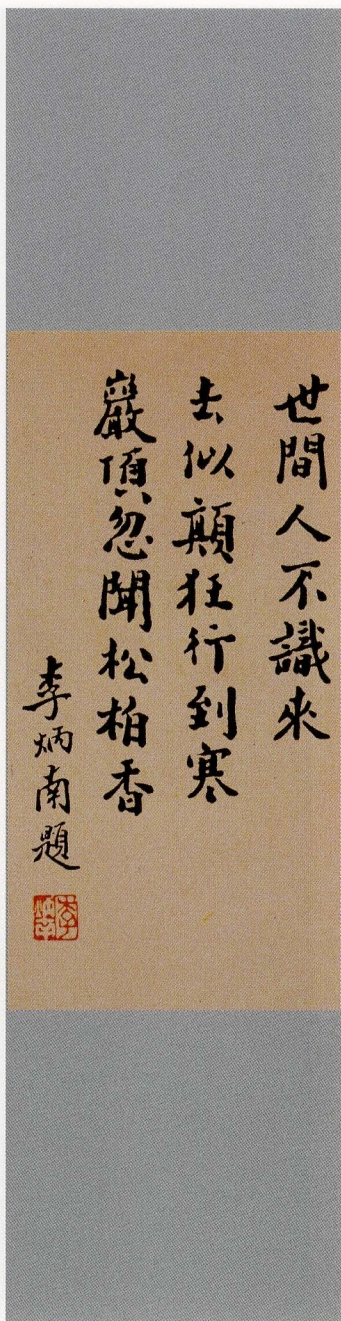 世間人不識來
去似顛狂行到寒
巖頂忽聞松柏香
李炳南題